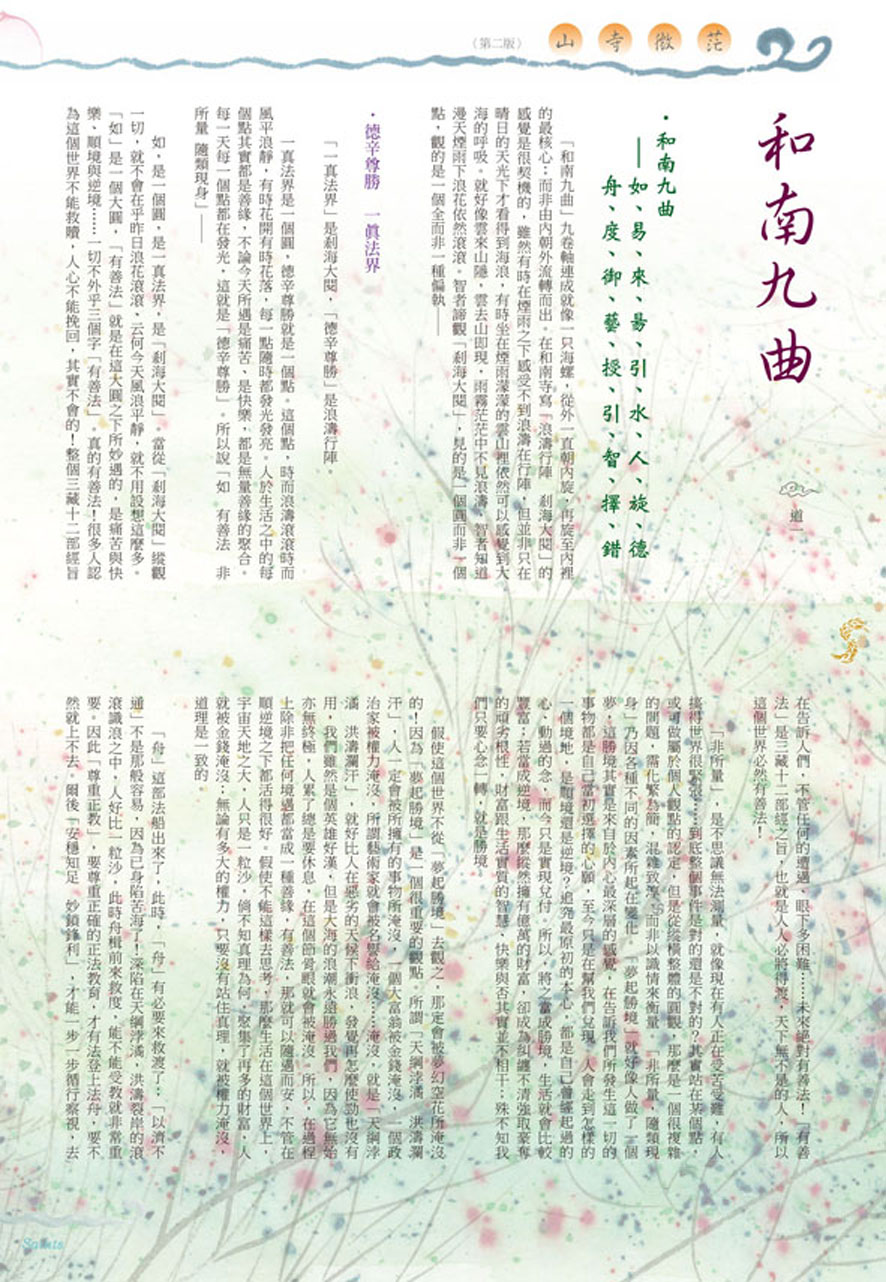 山寺微茫
（第二版）
和南九曲
道一
‧和南九曲
——如、易、來、昜、引、水、人、旋、德
舟、度、御、藝、授、引、智、擇、錯
「和南九曲」九卷軸連成就像一只海螺，從外一直朝內旋，再旋至內裡
的最核心…而非由內朝外流轉而出。在和南寺寫「浪濤行陣　剎海大閱」的
感覺是很契機的，雖然有時在煙雨之下感受不到浪濤在行陣，但並非只在
晴日的天光下才看得到海浪，有時坐在煙雨濛濛的雲山裡依然可以感覺到大
海的呼吸。就好像雲來山隱，雲去山即現，雨霧茫茫中不見浪濤，智者知道
漫天煙雨下浪花依然滾滾。智者諦觀「剎海大閱」，見的是一個圓而非一個
點，觀的是一個全而非一種偏執——
‧德辛尊勝　一眞法界
「一真法界」是剎海大閱，「德辛尊勝」是浪濤行陣。
一真法界是一個圓，德辛尊勝就是一個點。這個點，時而浪濤滾滾時而
風平浪靜，有時花開有時花落，每一點隨時都發光發亮。人於生活之中的每
個點其實都是善緣，不論今天所遇是痛苦、是快樂，都是無量善緣的聚合。
每一天每一個點都在發光，這就是「德辛尊勝」。所以說「如　有善法　非
所量　隨類現身」——
如，是一個圓，是一真法界，是「剎海大閱」。當從「剎海大閱」縱觀
一切，就不會在乎昨日浪花滾滾、云何今天風浪平靜，就不用設想這麼多。
「如」是一個大圓，「有善法」就是在這大圓之下所妙遇的，是痛苦與快
樂、順境與逆境……一切不外乎三個字「有善法」。真的有善法！很多人認
為這個世界不能救贖，人心不能挽回，其實不會的！整個三藏十二部經旨
在告訴人們，不管任何的遭遇、眼下多困難……未來絕對有善法！「有善
法」是三藏十二部經之旨，也就是人人必將得渡，天下無不是的人，所以
這個世界必然有善法！
「非所量」，是不思議無法測量，就像現在有人正在受苦受難，有人
搞得世界很緊張……到底整個事件是對的還是不對的？其實站在某個點，
或可做屬於個人觀點的認定，但是從縱橫整體的圓觀，那麼是一個很複雜
的問題，需化繁為簡，混雜致淳，而非以識情來衡量。「非所量，隨類現
身」乃因各種不同的因素所起在變化。「夢起勝境」就好像人做了一個
夢，這勝境其實是來自於內心最深層的感覺，在告訴我們所發生這一切的
事物都是自己當初選擇的心願，至今只是在幫我們兌現。人會走到怎樣的
一個境地，是順境還是逆境？追究最原初的本心，都是自己曾經起過的
心、動過的念，而今只是實現兌付。所以，將之當成勝境，生活就會比較
豐富；若當成逆境，那麼縱然擁有億萬的財富，卻成為糾纏不清強取豪奪
的頑劣根性，財富跟生活實質的智慧、快樂與否其實並不相干…殊不知我
們只要心念一轉，就是勝境。
假使這個世界不從「夢起勝境」去觀之，那定會被夢幻空花所淹沒
的！因為「夢起勝境」是一個很重要的觀點。所謂「天綱浡潏，洪濤瀾
汗」，人一定會被所擁有的事物所淹沒，一個大富翁被金錢淹沒，一個政
治家被權力淹沒，所謂藝術家就會被名譽給淹沒……淹沒，就是「天綱浡
潏　洪濤瀾汗」，就好比人在惡劣的天候下衝浪，發覺再怎麼使勁也沒有
用，我們雖然是個英雄好漢，但是大海的浪潮永遠勝過我們，因為它無始
亦無終極，人累了總是要休息，在這個節骨眼就會被淹沒。所以，在過程
上除非把任何境遇都當成一種善緣，有善法，那就可以隨遇而安，不管在
順逆境之下都活得很好。假使不能這樣去思考，那麼生活在這個世界上，
宇宙天地之大，人只是一粒沙，倘不知真理為何，聚集了再多的財富，人
就被金錢淹沒；無論有多大的權力，只要沒有站住真理，就被權力淹沒，
道理是一致的。
「舟」這部法船出來了，此時，「舟」有必要來救渡了…「以濟不
通」不是那般容易，因為已身陷苦海了！深陷在天綱浡潏，洪濤裂岸的滾
滾識浪之中，人好比一粒沙，此時舟楫前來救度，能不能受教就非常重
要。因此「尊重正教」，要尊重正確的正法教育，才有法登上法舟，要不
然就上不去。爾後「安穩知足　妙鎖鋒利」，才能一步一步循行察視，去
Spirits